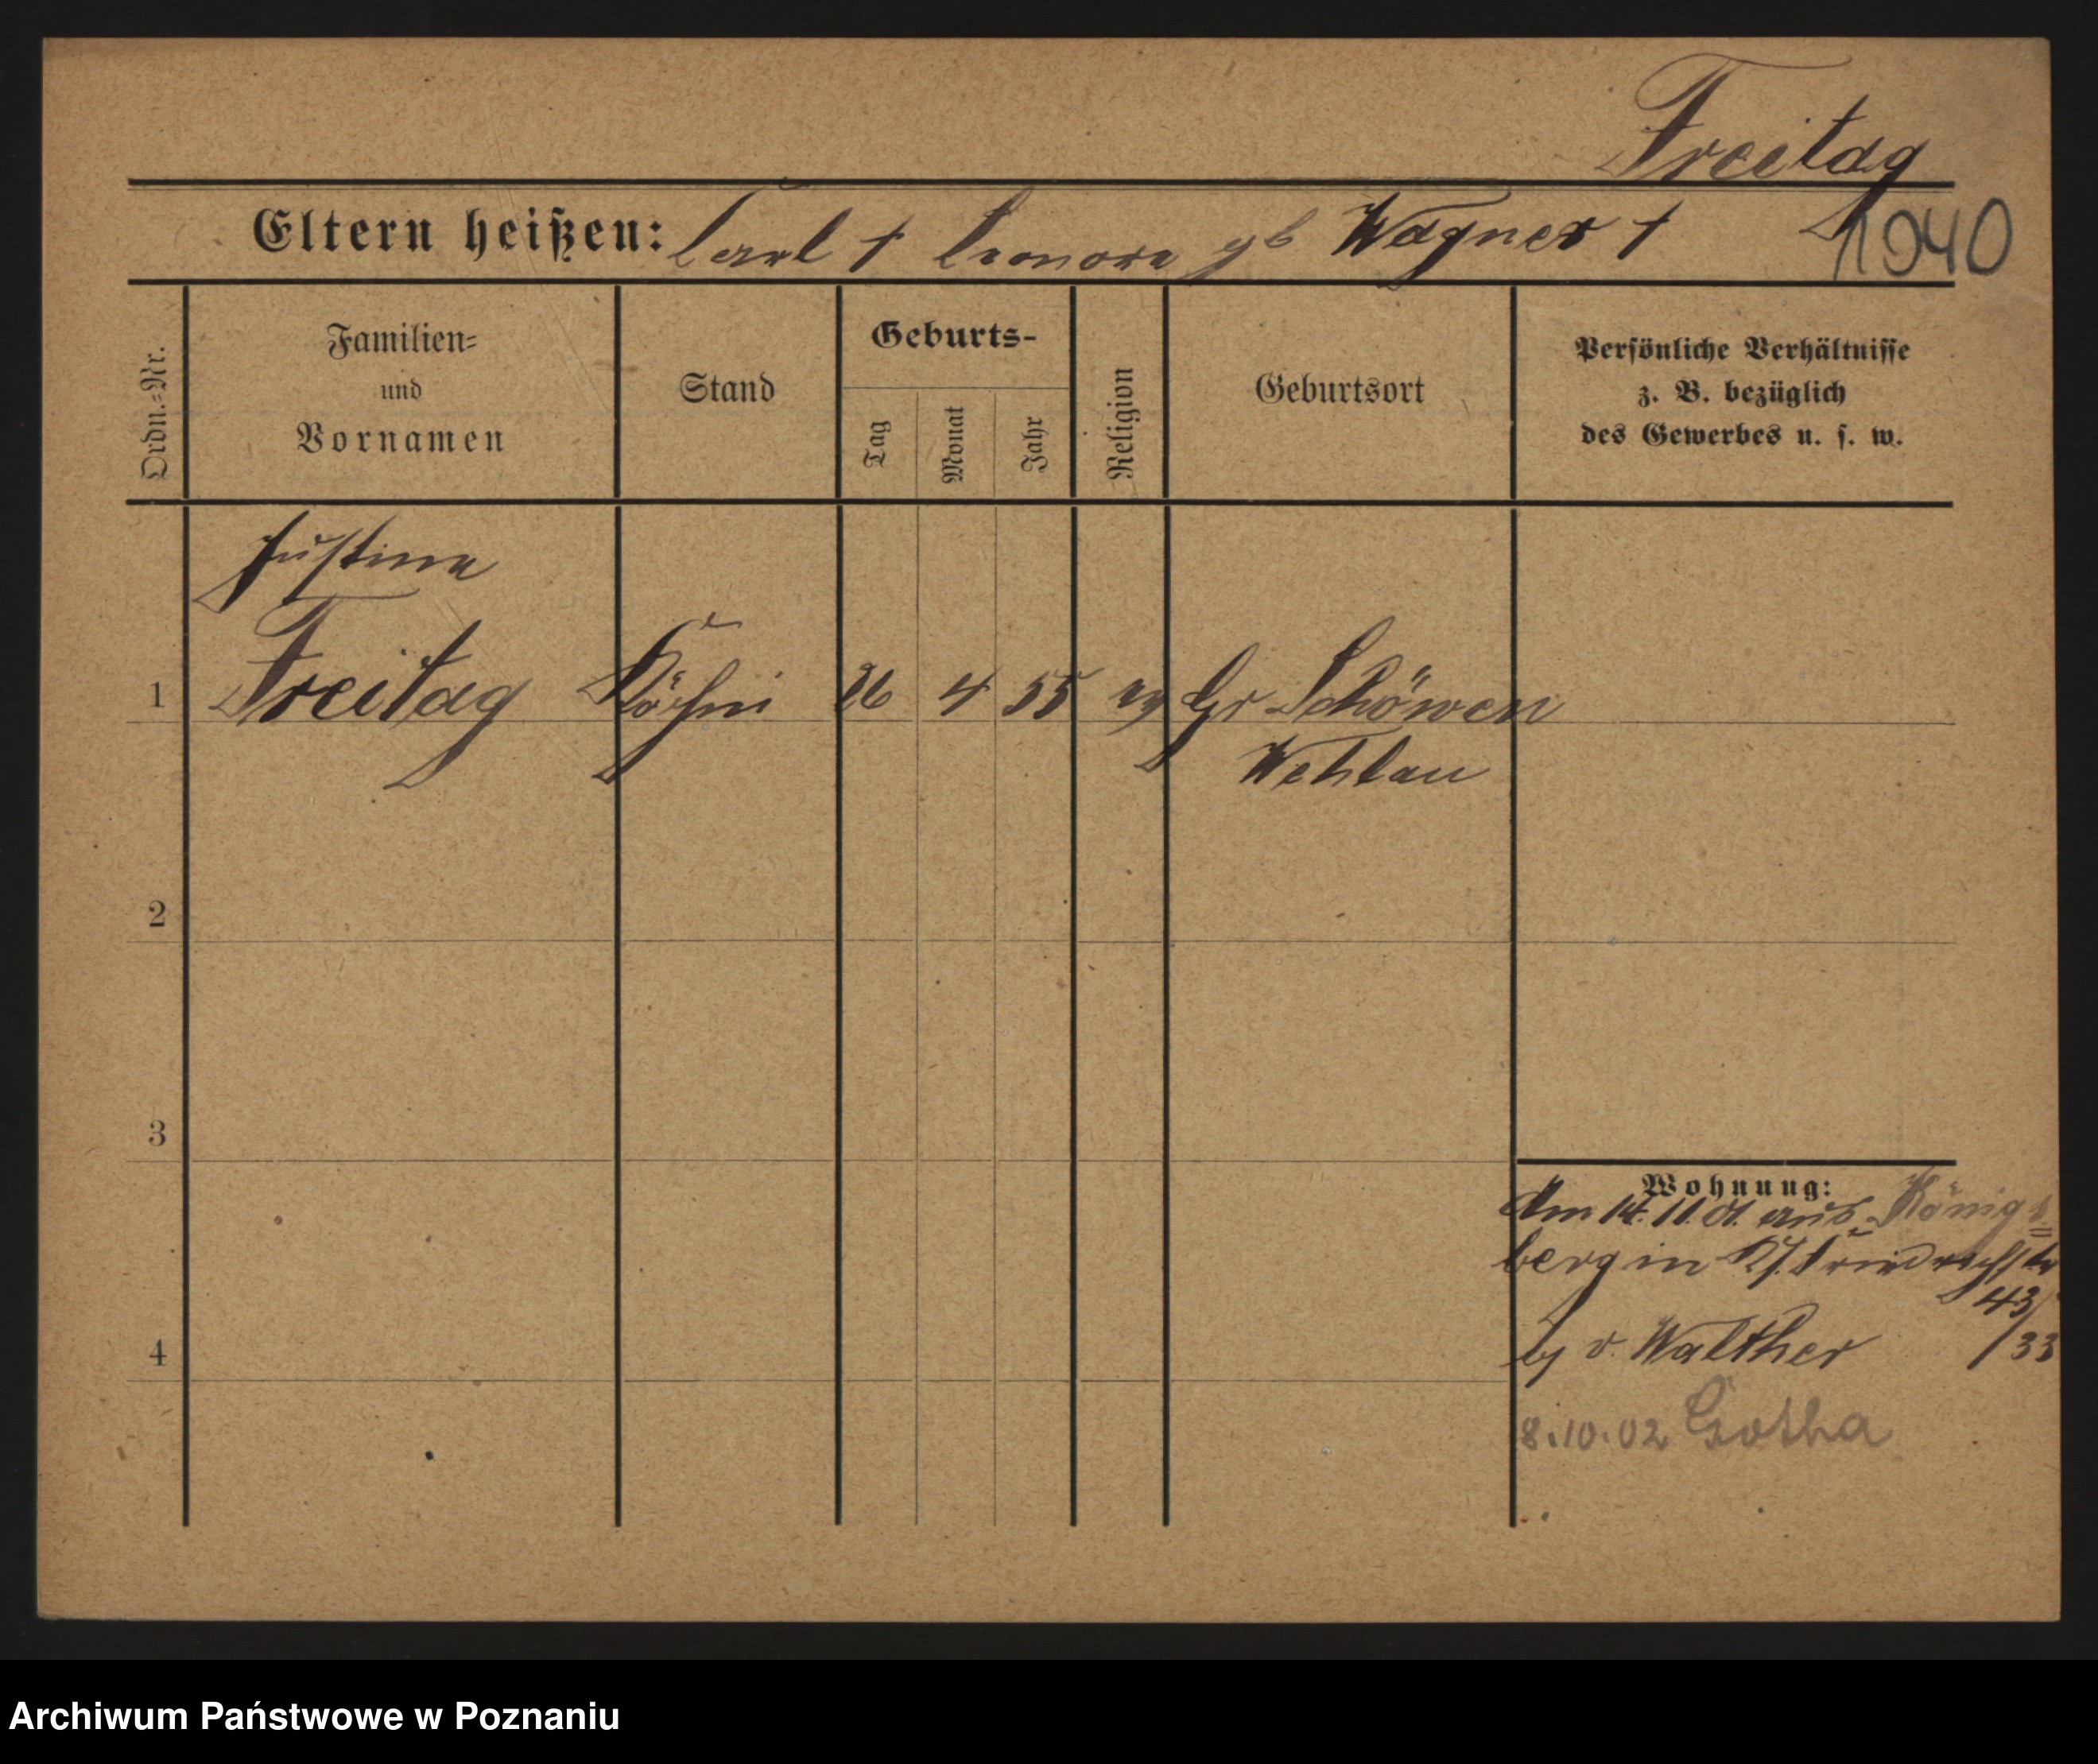 Freitag
Eltern heißen: Carl † Leonore gb Wagner †
1940
Ordn.=Nr.
Familien=
und
Vornamen
Stand
Geburts-
Tag
Monat
Jahr
Religion
Geburtsort
Persönliche Verhältnisse
z. B. bezüglich
des Gewerbes u. s. w.
Justine
1 Freitag Köchin 26 4 55 ev Gr Schöwen
Wehlau
2
3
4
Wohnung:
Am 14. 11. 01. aus Königs=
berg in Friedrichstr
43/
/33
by v. Walther
8.10.02 Gotha
Archiwum Państwowe w Poznaniu